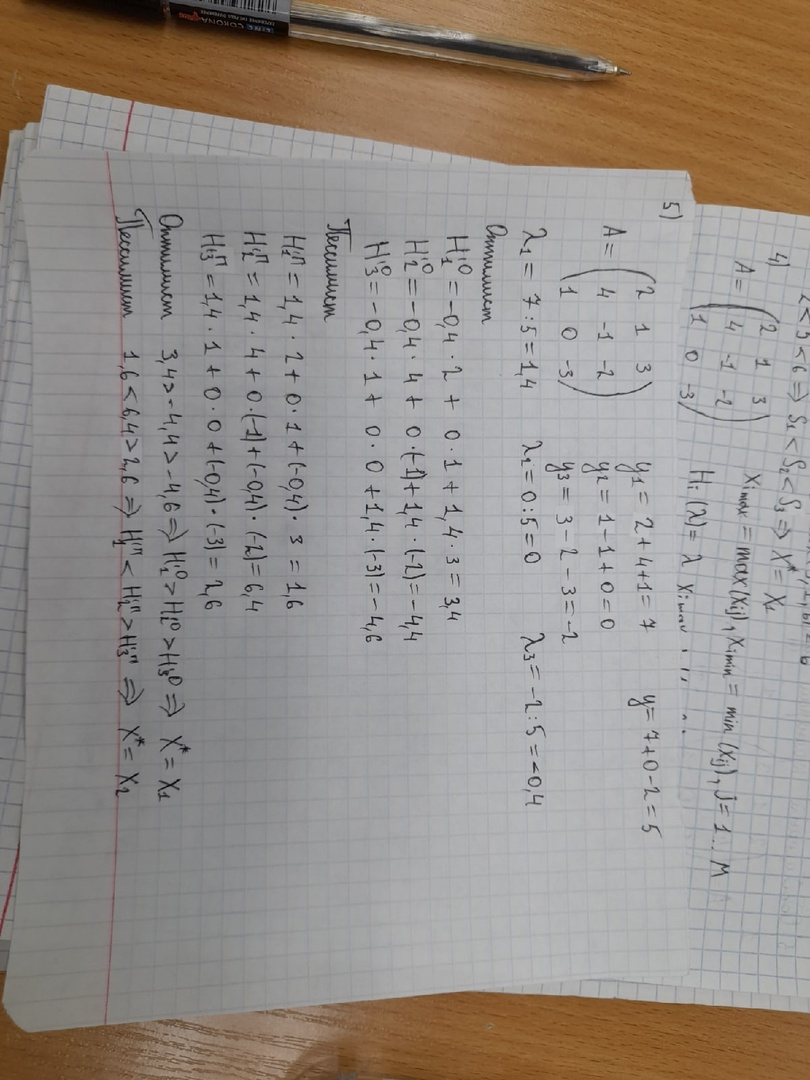 4)
A = (2 1 3
4 -1 -2
1 0 -3)
2 < 5 < 6 ⇒ S₁ < S₂ < S₃ ⇒ X* = X₁
X i max = max(Xij), X i min = min(Xij), j = 1..M
Hi(λ) = λ X i max
5)
A = (2 1 3
4 -1 -2
1 0 -3)
y₁ = 2 + 4 + 1 = 7 y = 7 + 0 - 2 = 5
y₂ = 1 - 1 + 0 = 0
y₃ = 3 - 2 - 3 = -2
λ₁ = 7 : 5 = 1,4 λ₂ = 0 : 5 = 0 λ₃ = -2 : 5 = -0,4
Оптимист
H₁ⁱᴼ = -0,4 · 2 + 0 · 1 + 1,4 · 3 = 3,4
H₂ⁱᴼ = -0,4 · 4 + 0 · (-1) + 1,4 · (-2) = -4,4
H₃ⁱᴼ = -0,4 · 1 + 0 · 0 + 1,4 · (-3) = -4,6
Пессимист
H₁ⁱᴨ = 1,4 · 2 + 0 · 1 + (-0,4) · 3 = 1,6
H₂ⁱᴨ = 1,4 · 4 + 0 · (-1) + (-0,4) · (-2) = 6,4
H₃ⁱᴨ = 1,4 · 1 + 0 · 0 + (-0,4) · (-3) = 2,6
Оптимист 3,4 > -4,4 > -4,6 ⇒ H₁ⁱᴼ > H₂ⁱᴼ > H₃ⁱᴼ ⇒ X* = X₁
Пессимист 1,6 < 6,4 > 2,6 ⇒ H₁ⁱᴨ < H₂ⁱᴨ > H₃ⁱᴨ ⇒ X* = X₂
LINE
CORONA